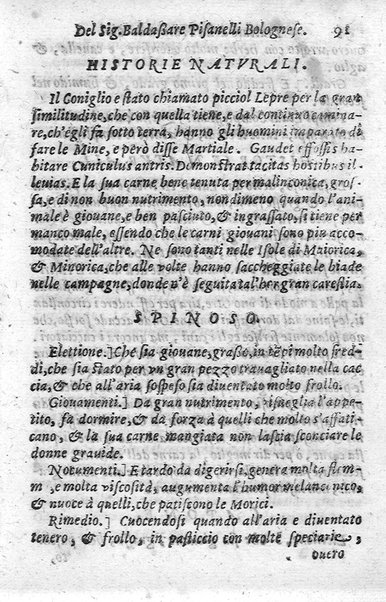 Del Sig. Baldaßare Pisanelli Bolognese. 91
HISTORIE NATVRALI.
Il Coniglio e stato chiamato picciol Lepre per la gran
similitudine, che con quella tiene, e dal continuo camina
re, ch'egli fa sotto terra, hanno gli huomini imparato di
fare le Mine, e però disse Martiale. Gaudet effossis ha-
bitare Cuniculus antris. Demonstrat tacitas hostibus il
le uias. E la sua carne bene tenuta per malinconica, gros-
sa, e di non buon nutrimento, nondimeno quando l'ani-
male è giouane, e ben pasciuto, & ingrassato, si tiene per
manco male, essendo che le carni giouani sono piu acco-
modate dell'altre. Ne sono tanti nelle Isole di Maiorica,
& Minorica, che alle volte hanno saccheggiate le biade
nelle campagne, donde n'è seguita tal'hor gran carestia.
SPINOSO.
Elettione.] Che sia giouane, grasso, in tẽpi molto fred-
di, che sia stato per vn gran pezzo trauagliato nella cac
cia, & che all'aria sospeso sia diuentato molto frollo.
Giouamenti.] Da gran nutrimento, risueglia l'appe-
tito, fa dormire, & da forza à quelli che molto s'affati-
cano, & la sua carne mangiata non lascia sconciare le
donne grauide.
Nocumenti.] E tardo da digerirsi, genera molta flem-
m, e molta viscosità, augumenta l'humor melanconico,
& nuoce à quelli, che patiscono le Morici.
Rimedio.] Cuocendosi quando all'aria e diuentato
tenero, & frollo, in pasticcio con molte speciarie,
ouero